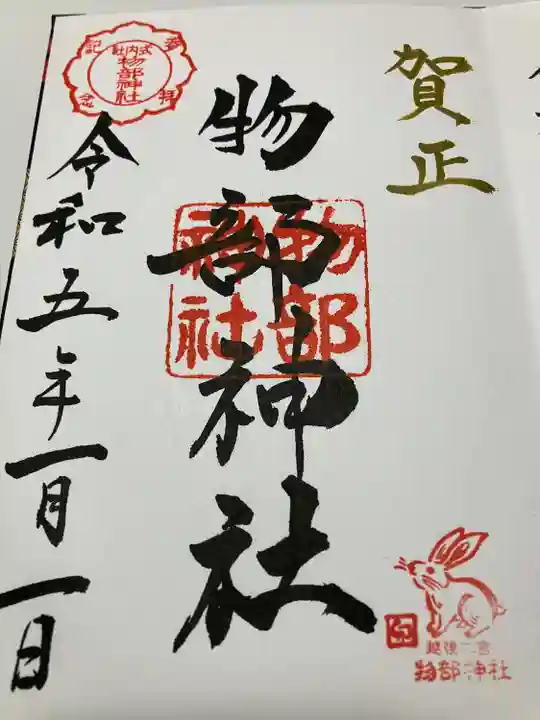 賀正
物部神社
物部
神社
令和五年一月一日
式内社
物部神社
参拝記念
卯
越後二宮
物部神社